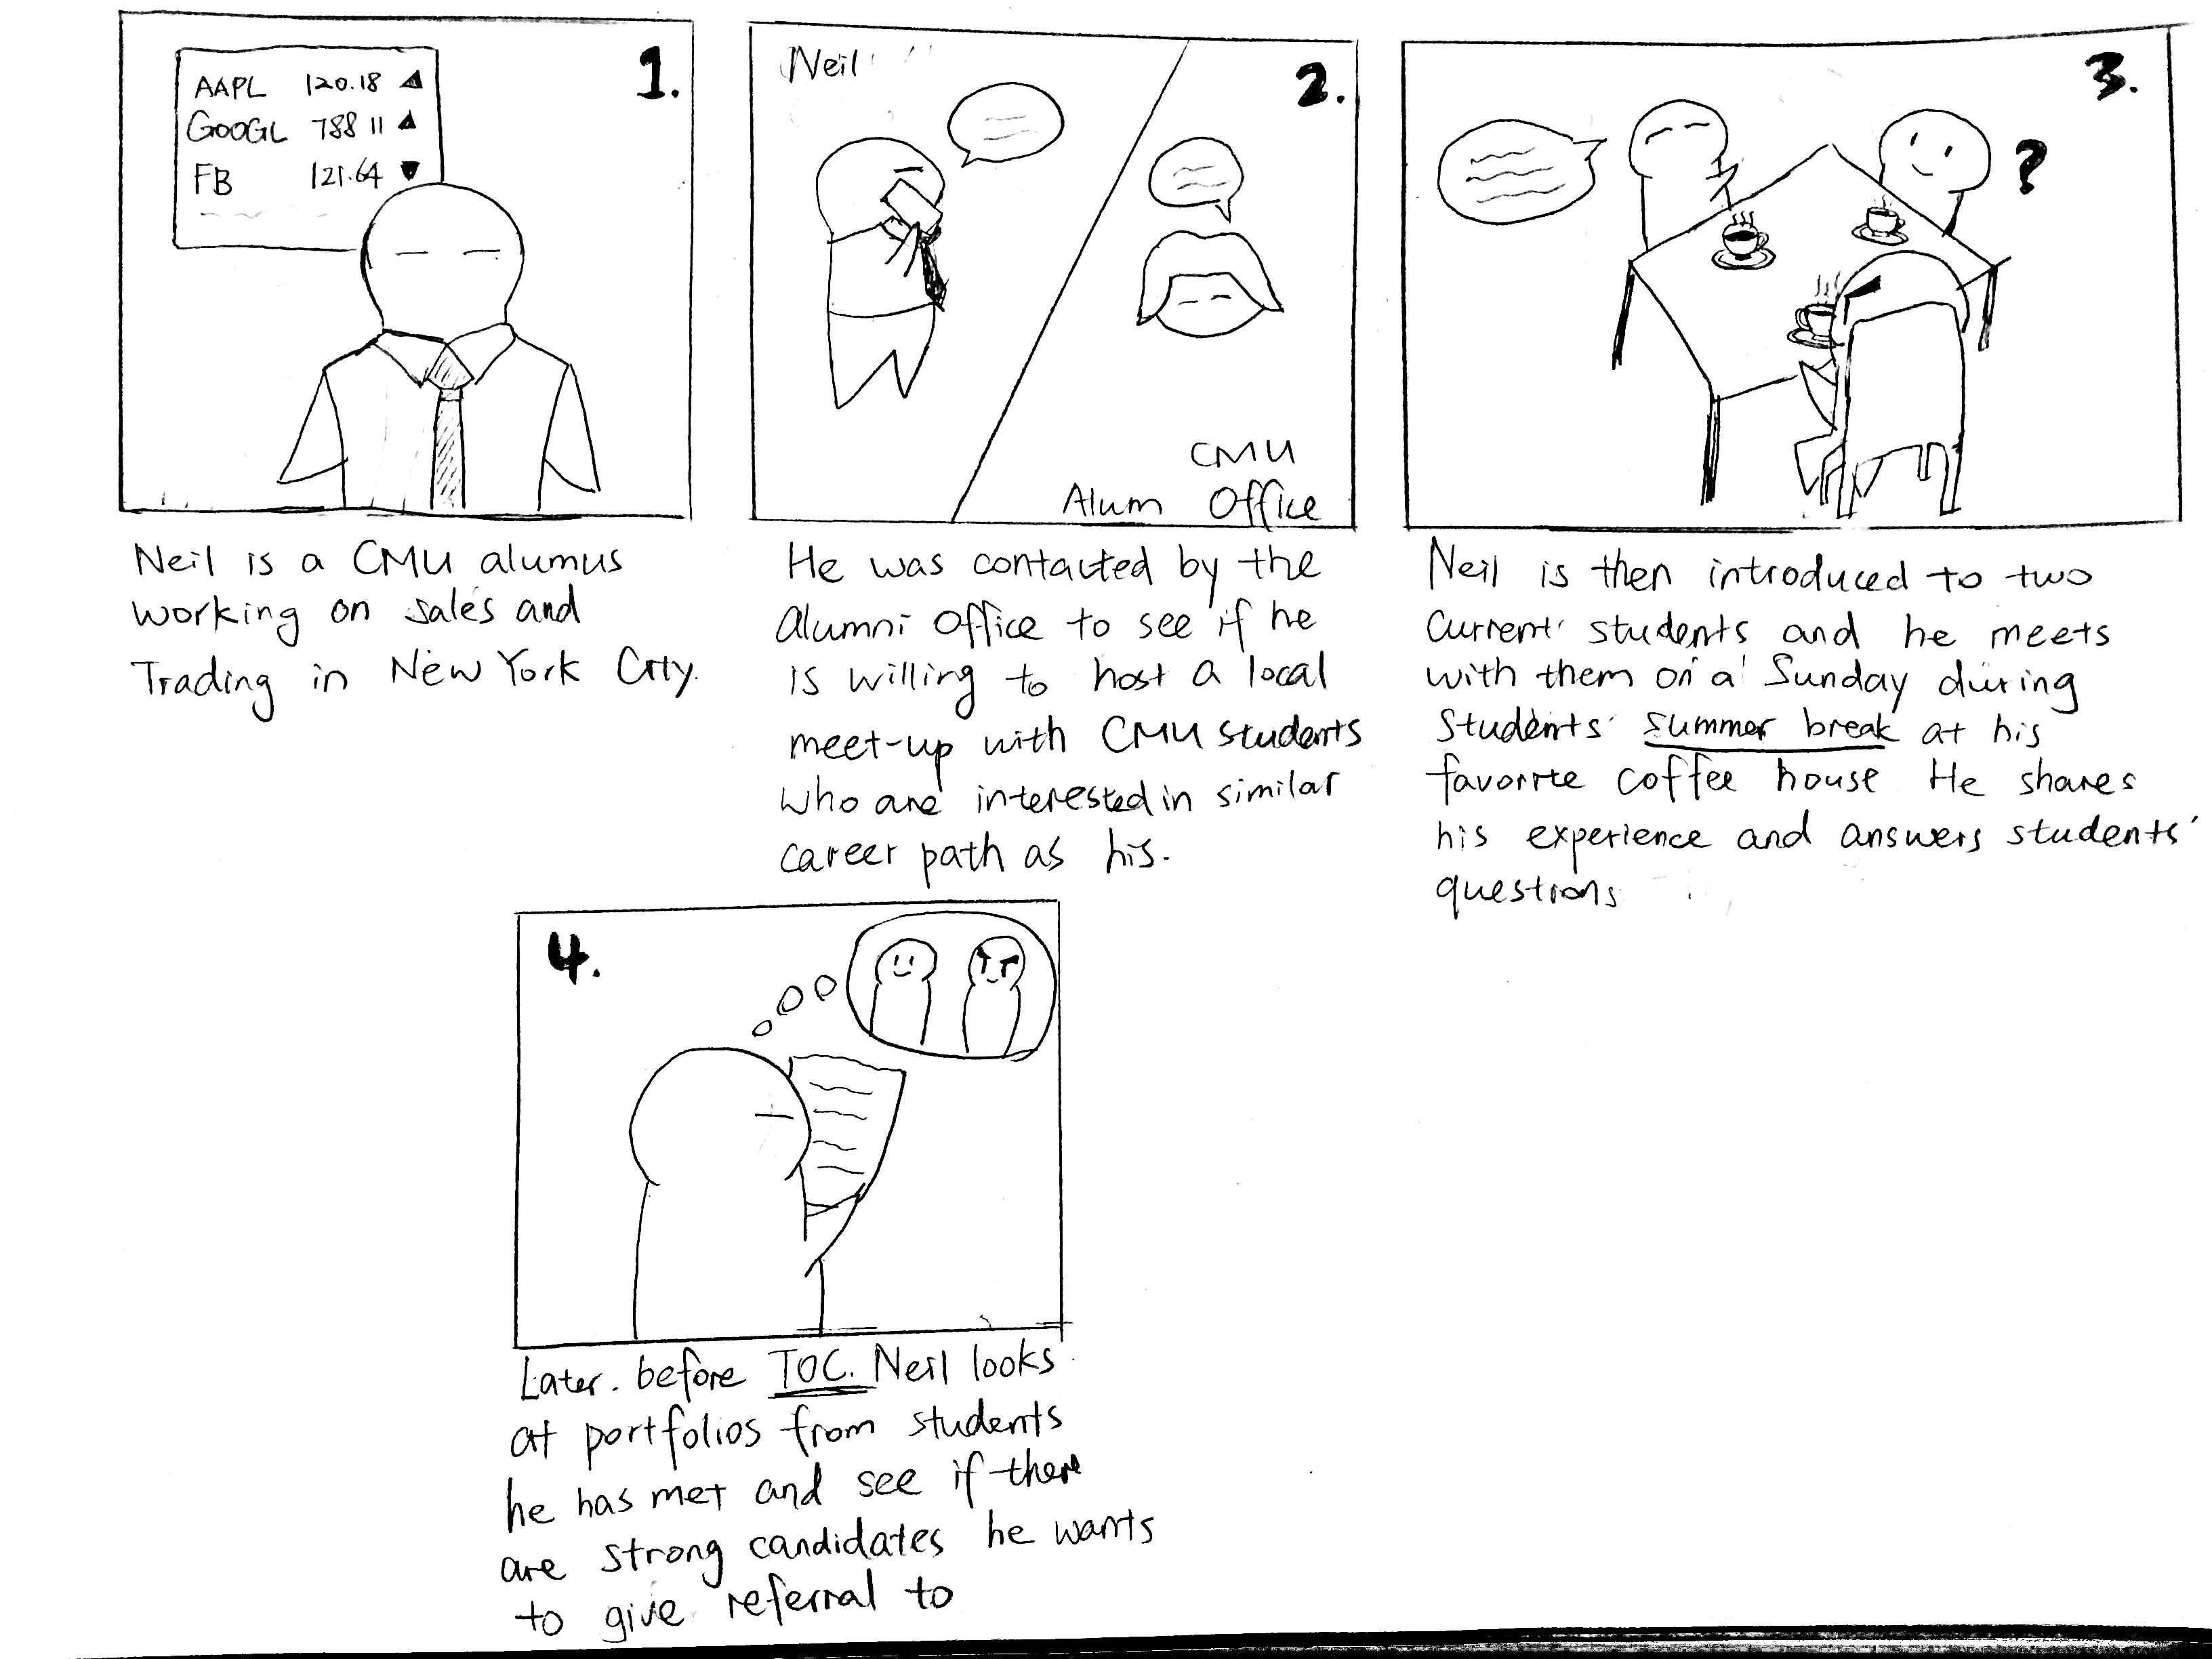 1.
AAPL 120.18 ▲
GOOGL 788 11 ▲
FB 121.64 ▼
Neil is a CMU alumus
working on sales and
Trading in New York City.
2.
Neil
CMU
Alum Office
He was contacted by the
Alumni Office to see if he
is willing to host a local
meet-up with CMU students
who are interested in similar
career path as his.
3.
?
Neil is then introduced to two
current students and he meets
with them on a Sunday during
students' summer break at his
favorite coffee house He shares
his experience and answers students'
questions
4.
Later. before TOC. Neil looks
at portfolios from students
he has met and see if there
are strong candidates he wants
to give referral to